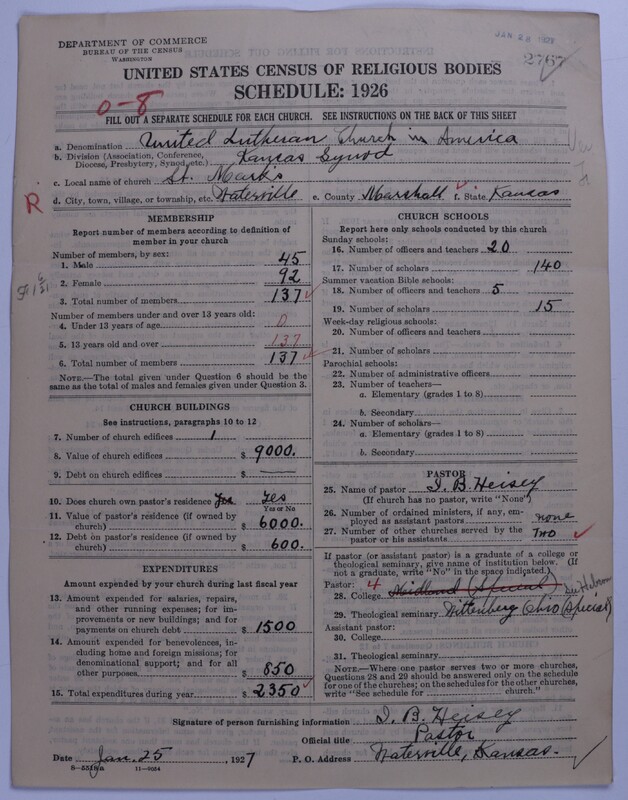 JAN 28 1927
DEPARTMENT OF COMMERCE
BUREAU OF THE CENSUS
WASHINGTON
2767
UNITED STATES CENSUS OF RELIGIOUS BODIES
SCHEDULE: 1926
0-8
FILL OUT A SEPARATE SCHEDULE FOR EACH CHURCH. SEE INSTRUCTIONS ON THE BACK OF THIS SHEET
a. Denomination United Lutheran Church in America
b. Division (Association, Conference, Diocese, Presbytery, Synod, etc.) Kansas Synod
c. Local name of church St. Mark's
R
d. City, town, village, or township, etc. Waterville e. County Marshall f. State Kansas
MEMBERSHIP
Report number of members according to definition of member in your church
Number of members, by sex:
1. Male 45
2. Female 92
3. Total number of members 137
Number of members under and over 13 years old:
4. Under 13 years of age 0
5. 13 years old and over 137
6. Total number of members 137
NOTE.—The total given under Question 6 should be the same as the total of males and females given under Question 3.
CHURCH BUILDINGS
See instructions, paragraphs 10 to 12
7. Number of church edifices 1
8. Value of church edifices $ 9000.
9. Debt on church edifices $
10. Does church own pastor's residence Yes Yes
Yes or No
11. Value of pastor's residence (if owned by church) $ 6000.
12. Debt on pastor's residence (if owned by church) $ 600.
EXPENDITURES
Amount expended by your church during last fiscal year
13. Amount expended for salaries, repairs, and other running expenses; for improvements or new buildings; and for payments on church debt $ 1500
14. Amount expended for benevolences, including home and foreign missions; for denominational support; and for all other purposes $ 850
15. Total expenditures during year $ 2350
CHURCH SCHOOLS
Report here only schools conducted by this church
Sunday schools:
16. Number of officers and teachers 20
17. Number of scholars 140
Summer vacation Bible schools:
18. Number of officers and teachers 5
19. Number of scholars 15
Week-day religious schools:
20. Number of officers and teachers
21. Number of scholars
Parochial schools:
22. Number of administrative officers
23. Number of teachers—
a. Elementary (grades 1 to 8)
b. Secondary
24. Number of scholars—
a. Elementary (grades 1 to 8)
b. Secondary
PASTOR
25. Name of pastor I. B. Heisey
(If church has no pastor, write "None")
26. Number of ordained ministers, if any, employed as assistant pastors none
27. Number of other churches served by the pastor or his assistants Two
If pastor (or assistant pastor) is a graduate of a college or theological seminary, give name of institution below. (If not a graduate, write "No" in the space indicated.)
Pastor: 4
28. College Midland (Special)
29. Theological seminary Wittenberg Ohio (Special)
Assistant pastor:
30. College
31. Theological seminary
NOTE.—Where one pastor serves two or more churches, Questions 28 and 29 should be answered only on the schedule for one of the churches; on the schedules for the other churches, write "See schedule for church."
Signature of person furnishing information I. B. Heisey
Official title Pastor
Date Jan. 25, 1927 P. O. Address Waterville, Kansas.
8-551Ba 11-9034